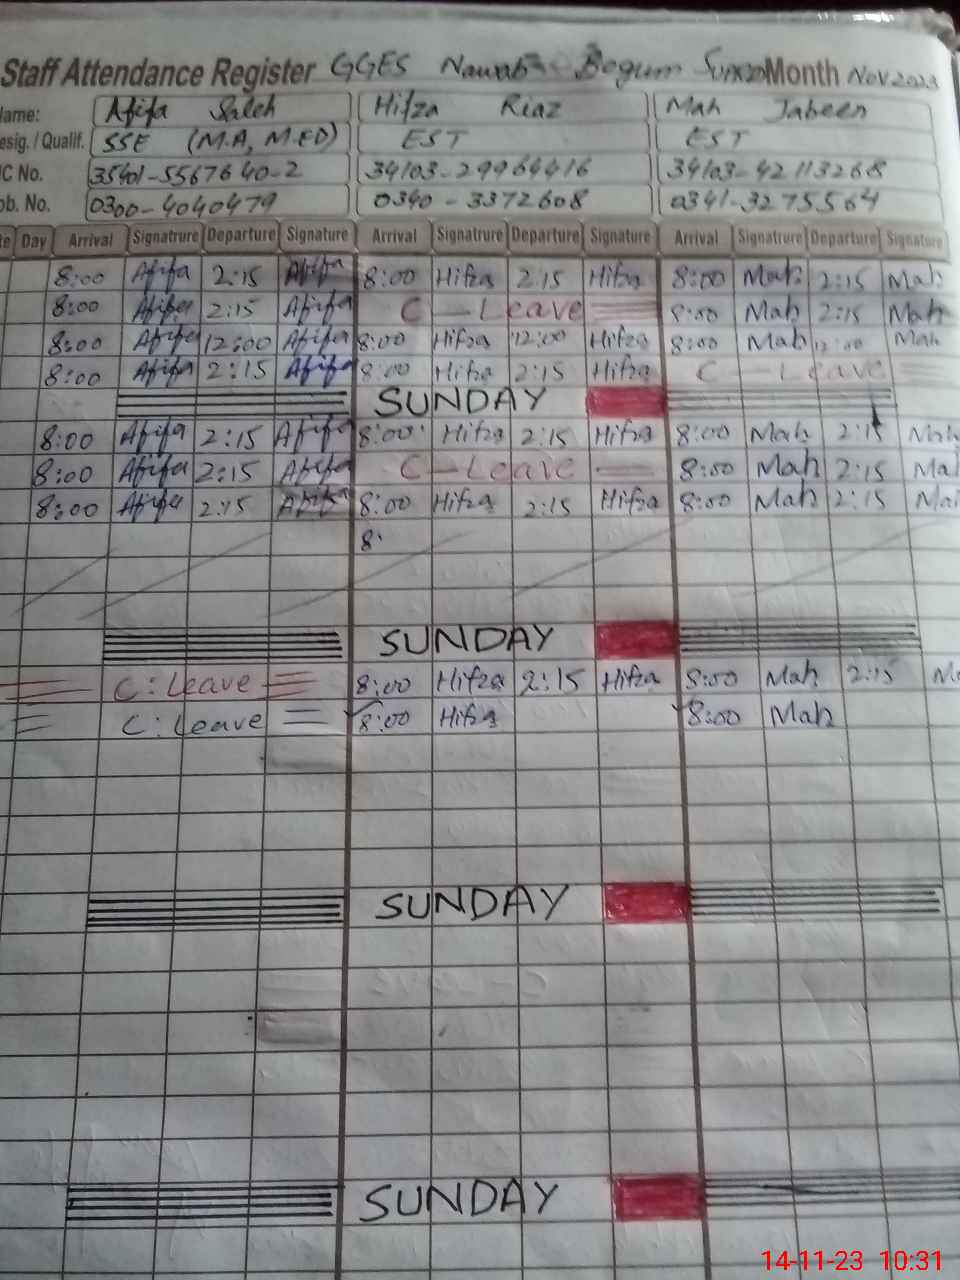 Staff Attendance Register GGES Nawab Begum Month Nov 2023
Name: Afifa Saleh Hifza Riaz Mah Jabeen
esig. / Qualif. SSE (M.A, M.ED) EST EST
IC No. 35401-5567640-2 34103-29964416 34103-42113268
ob. No. 0300-4040479 0340-3372608 0341-3275564
te Day Arrival Signatrure Departure Signature Arrival Signatrure Departure Signature Arrival Signatrure Departure Signature
8:00 Afifa 2:15 Afifa 8:00 Hifza 2:15 Hifza 8:00 Mah 2:15 Mah
8:00 Afifa 2:15 Afifa C - Leave 8:00 Mah 2:15 Mah
8:00 Afifa 12:00 Afifa 8:00 Hifza 12:00 Hifza 8:00 Mah 12:00 Mah
8:00 Afifa 2:15 Afifa 8:00 Hifza 2:15 Hifza C - Leave
SUNDAY
8:00 Afifa 2:15 Afifa 8:00 Hifza 2:15 Hifza 8:00 Mah 2:15 Mah
8:00 Afifa 2:15 Afifa C - Leave 8:00 Mah 2:15 Ma
8:00 Afifa 2:15 Afifa 8:00 Hifza 2:15 Hifza 8:00 Mah 2:15 Ma
8:
SUNDAY
C: Leave 8:00 Hifza 2:15 Hifza 8:00 Mah 2:15 M
C: Leave 8:00 Hifza 8:00 Mah
SUNDAY
SUNDAY
14-11-23 10:31